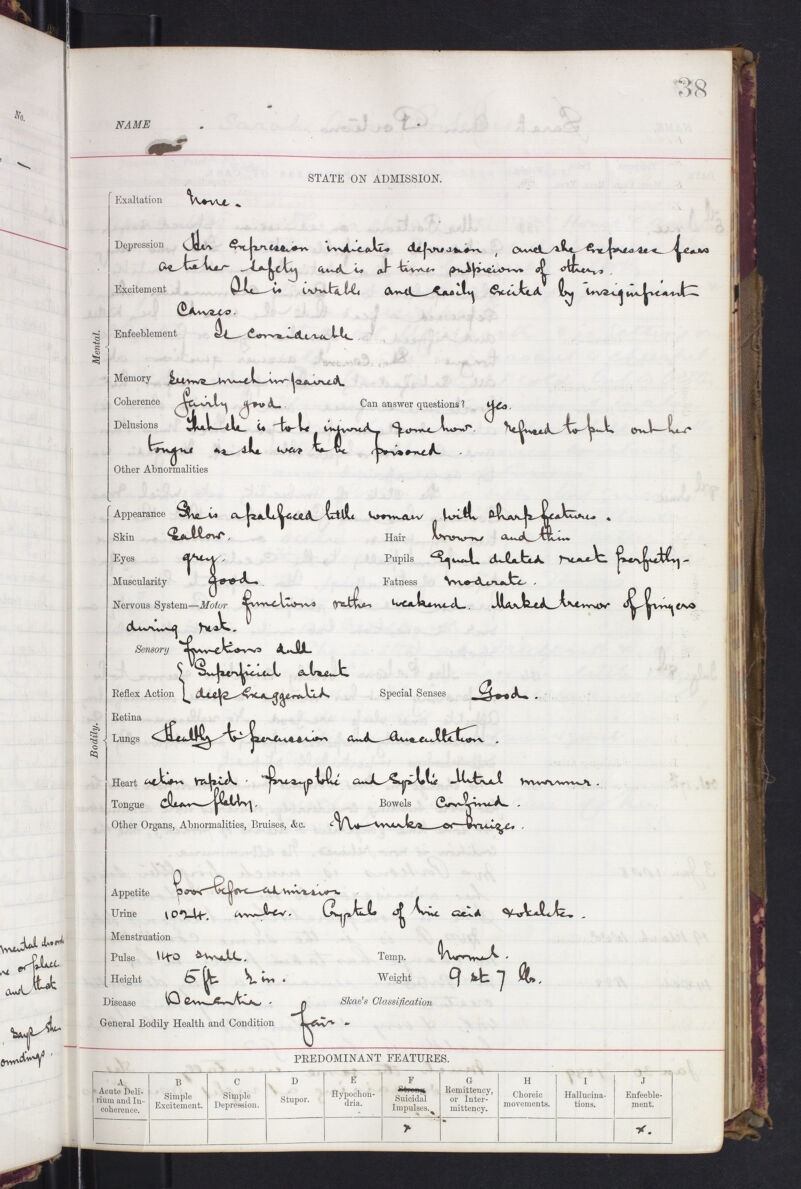 38
No.
NAME
STATE ON ADMISSION.
Mental.
Exaltation None.
Depression Her Expression indicates depression, and she Expresses fears
as to her safety and is at times suspicious of others.
Excitement She is irritable and easily Excited by insignificant
Causes.
Enfeeblement Is Considerable
Memory Seems much impaired
Coherence fairly good. Can answer questions? yes.
Delusions That she is to be injured somehow refused to put out her
tongue as she was to be poisoned.
Other Abnormalities
Bodily.
Appearance She is a palefaced little woman with sharp features.
Skin Sallow. Hair brown and thin
Eyes grey. Pupils Equal dilated react perfectly-
Muscularity good. Fatness moderate.
Nervous System—Motor functions rather weakened. Marked tremor of fingers
during rest.
Sensory functions dull
Superficial absent
Reflex Action deep Exaggerated Special Senses Good.
Retina
Lungs Healthy to percussion and Auscultation.
Heart action rapid. Presystolic and Systolic Mitral murmur.
Tongue Clean flabby. Bowels Confined.
Other Organs, Abnormalities, Bruises, &c. No marks or bruizes.
Appetite Poor before admission
Urine 1024. amber. Crystals of Uric acid & oxalates.
Menstruation
Pulse 140 small. Temp. Normal.
Height 5 ft ½ in. Weight 9 st 7 lbs.
Disease Dementia. Skae's Classification
General Bodily Health and Condition fair.
PREDOMINANT FEATURES.
A Acute Delirium and Incoherence. B Simple Excitement. C Simple Depression. D Stupor. E Hypochondria. F Strong Suicidal Impulses. G Remittency, or Intermittency. H Choreic movements. I Hallucinations. J Enfeeblement.
x x.
mental
or place
and that
Says she